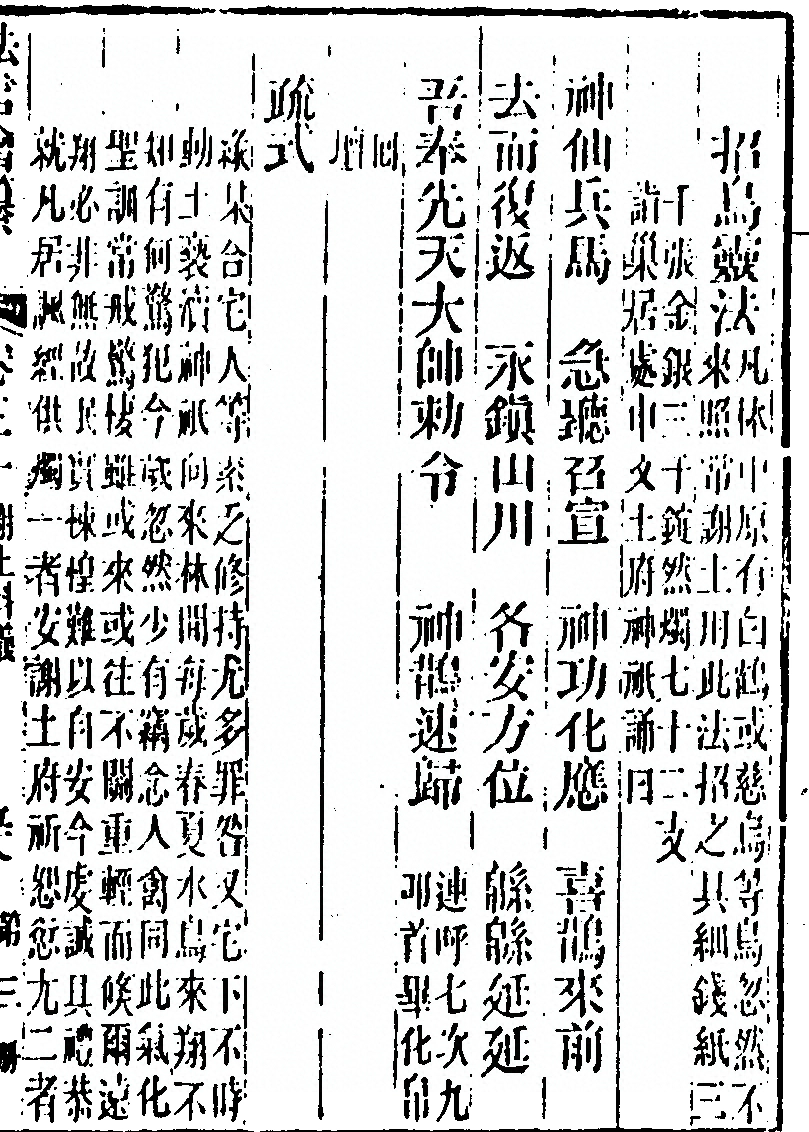 招鳥法凡林中原有白鶴或慈烏等鳥忽然不
來照常謝土用此法招之具細錢紙三
千張金銀三千錠然燭七十二支
詣巢居處申文土府神祇誦曰
神仙兵馬　急聽召宣　神功化應　喜鵲來前
去而復返　永鎮山川　各安方位　緜緜延延
吾奉先天大帥勅令　神鵲速歸　連呼七次九
叩首畢化帛
回
壇
疏式
某合宅人等素乏修持尤多罪咎又宅下不時
動土褻瀆神祇向來林間每歲春夏水鳥來翔不
知有何驚犯今歲忽然少有竊念人禽同此氣化
聖訓常戒驚雖或來或往不關重輕而倏爾遠
翔必非無故民實悚惶難以自安今虔誠具禮恭
就凡居諷經供燭一者安謝土府祈恕愆尤二者
法言會纂　卷三十　謝土科儀　第三冊